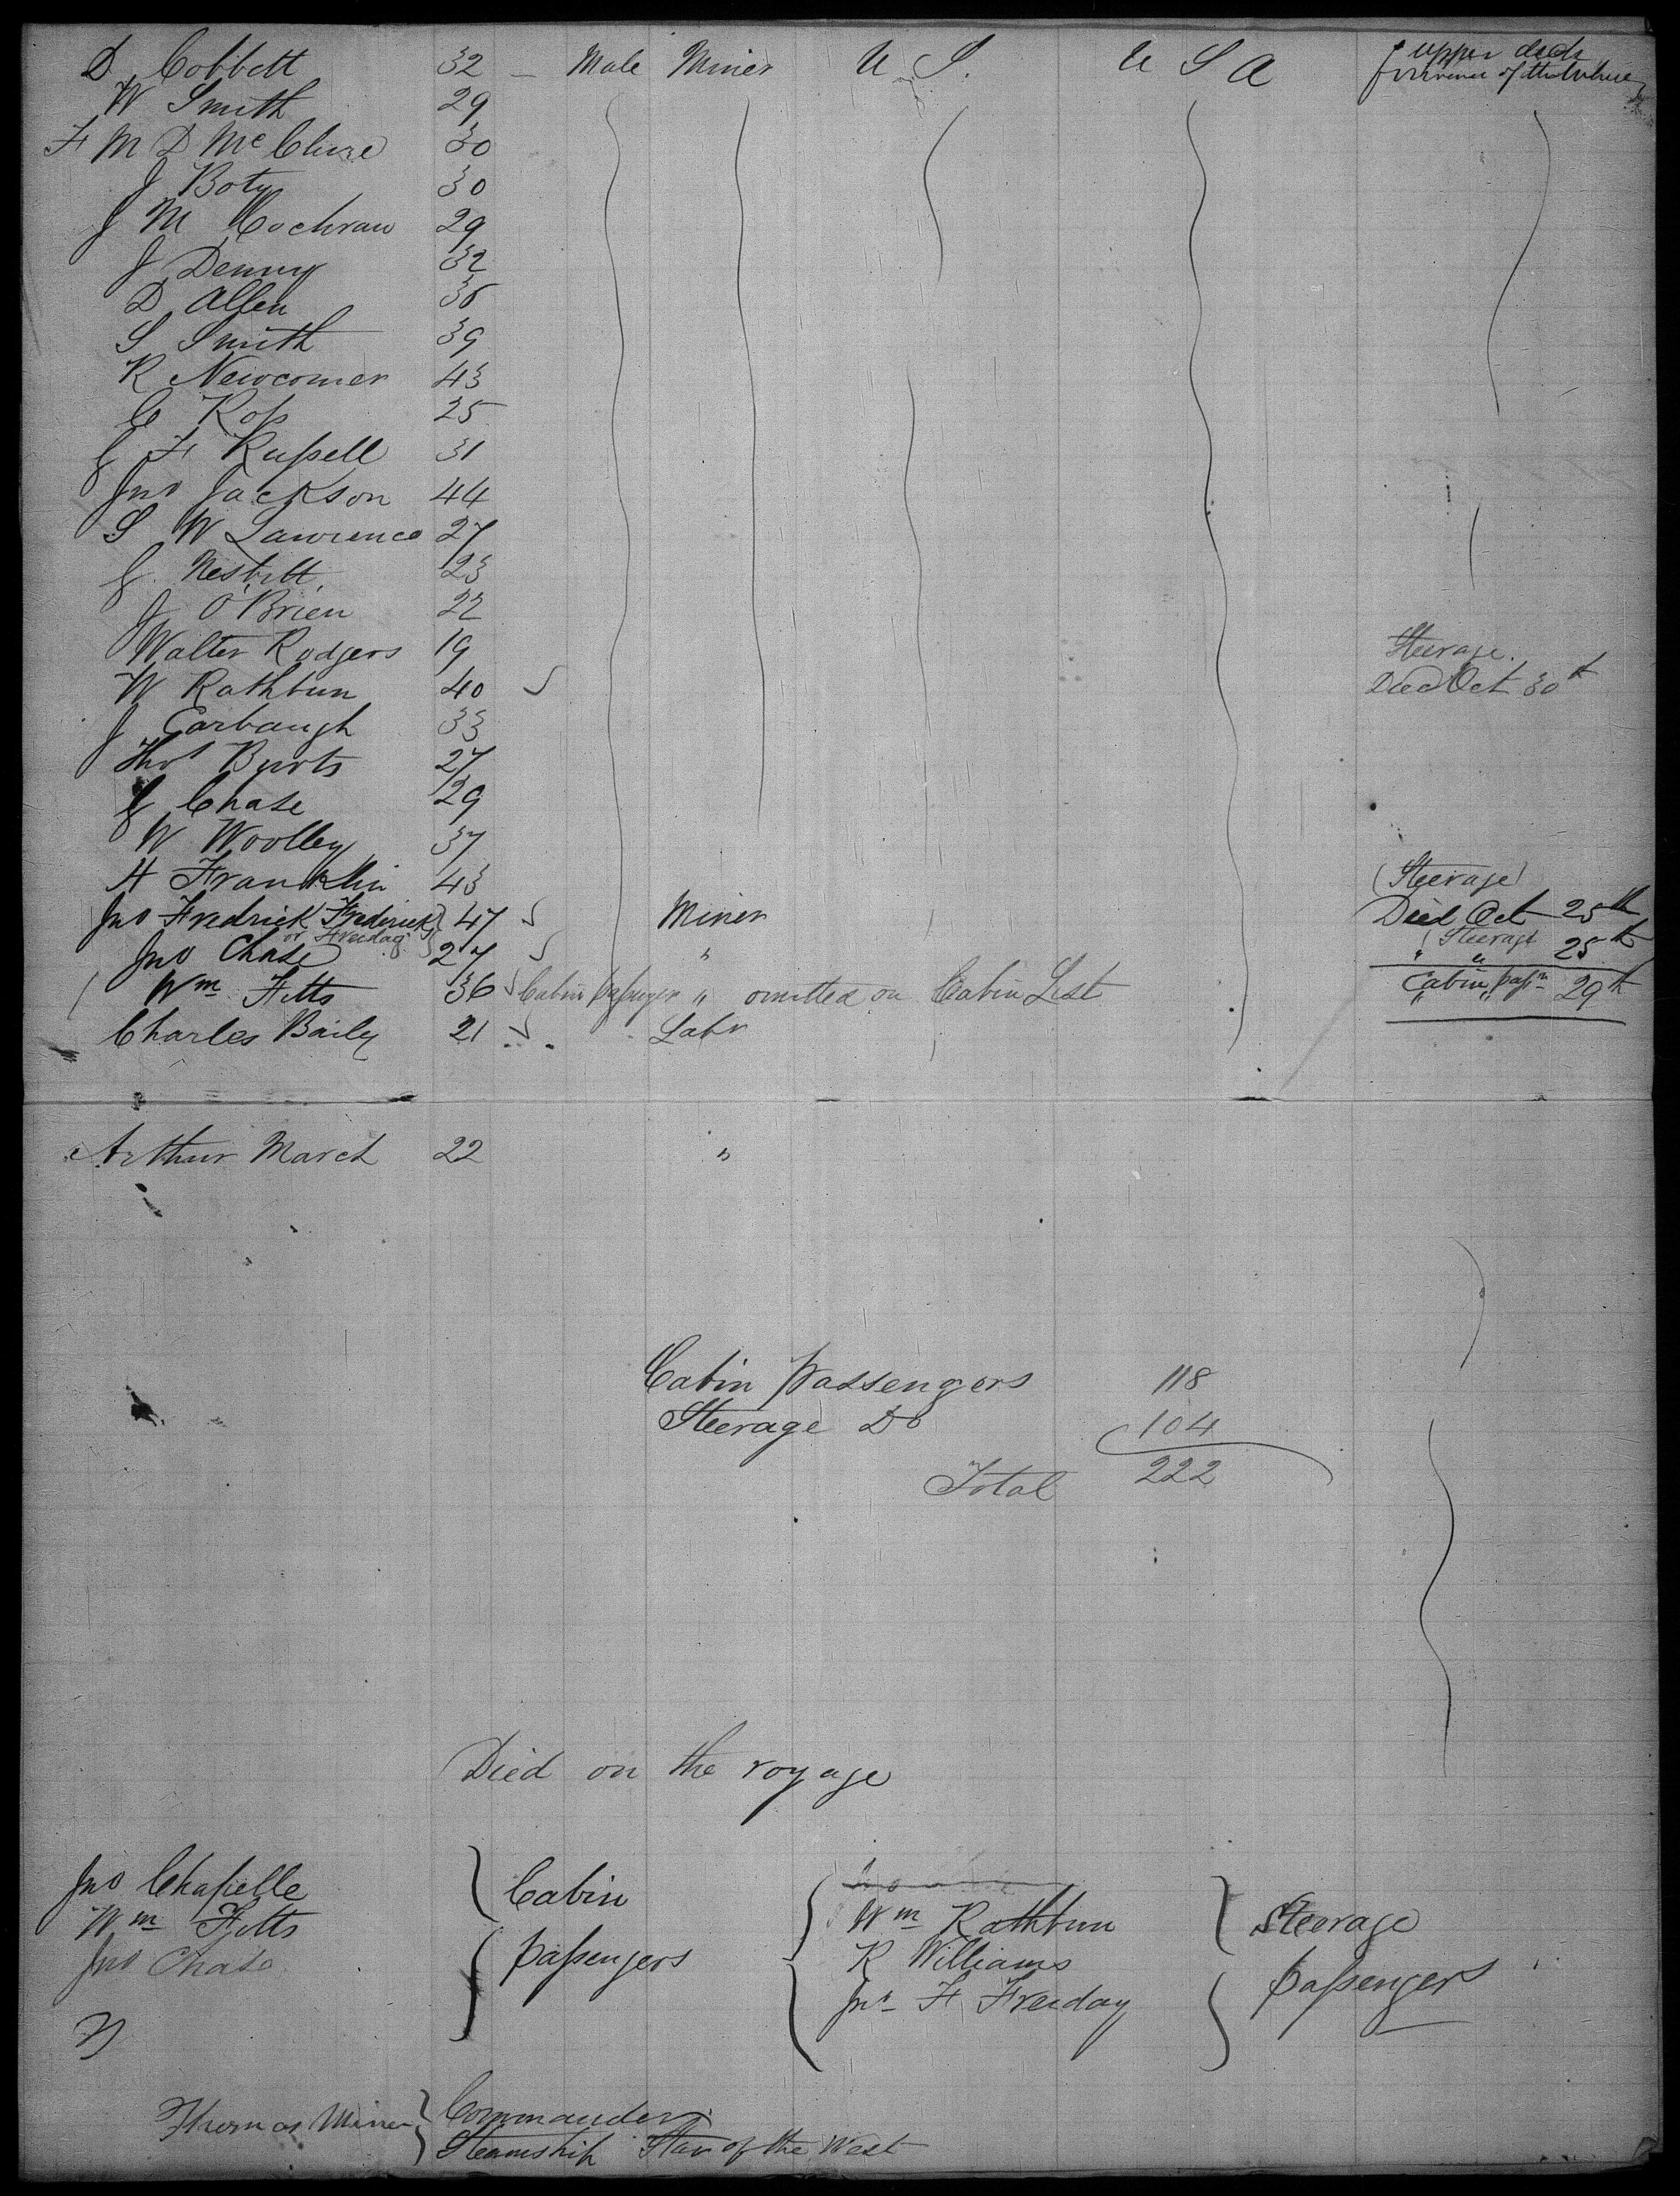 D. Cobbett 32 — Male Miner U S. U S A upper deck
W Smith 29
F M D McClure 30
J Boty 30
J M Cochran 29
J Denny 32
D Allen 36
S Smith 39
R Newcomer 43
C Ross 25
G F Russell 31
Jno Jackson 44
S W Lawrence 27
G. Nesbitt 23
J O'Brien 22
Walter Rodgers 19 Steerage.
W Rathbun 40 ✓ Died Oct 30th
J Earbaugh 33
Thos Byrots 27
G Chase 29
W Woolley 37
H Franklin 43 (Steerage)
Jno Fredrick Frederick 47 ✓ Miner Died Oct 25th
or Freidag
Jno Chase 27 ✓ " (Steerage " " 25th
Wm Fitts 36 ✓ Cabin passenger " omitted on Cabin List Cabin passr " " 29th
Charles Baily 21 ✓ Labr
Arthur March 22 "
Cabin passengers 118
Steerage Do 104
Total 222
Died on the voyage
Jno Chapelle
Wm Fitts
Jno Chase
Cabin
passengers
Wm Rathbun
R Williams
Jno F Freiday
Steerage
passengers
Thomas Miner
Commander
Steamship Star of the West